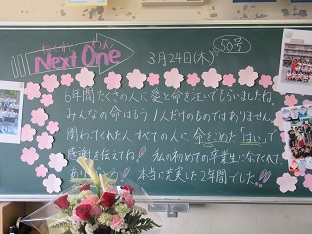 ねくすと わん
Next One
3月24日(木)
50号
6年間たくさんの人に愛と命を注いでもらいましたね。
みんなの命はもう1人だけのものではありません。
関わってくれた人すべての人に命をこめた「はい」で
感謝を伝えてね! 私の初めての卒業生になってくれて
ありがとう。 本当に充実した2年間でした。